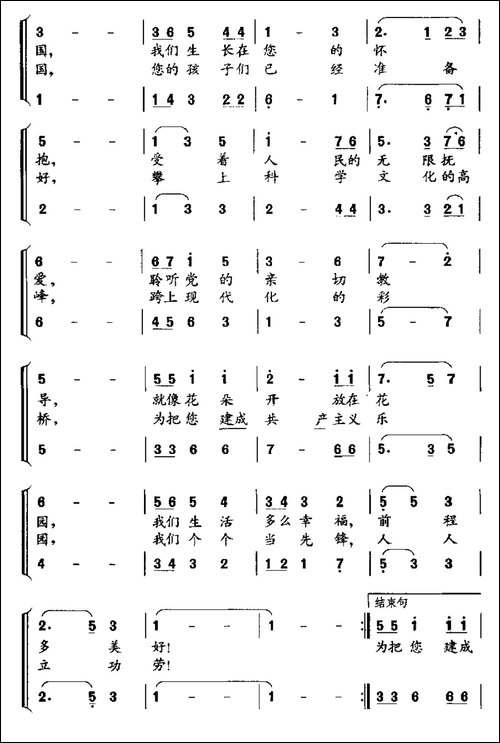 3 - - | 3 6 5 4 4 | 1 - 3 | 2. 1 2 3
国, 我们生 长在 您 的 怀
国, 您的孩 子们 已 经 准 备
1 - - | 1 4 3 2 2 | 6 - 1 | 7. 6 7 1
5 - - | 1 3 5 | i - 7 6 | 5. 3 7 6
抱, 受 着 人 民的 无 限抚
好, 攀 上 科 学 文 化的高
2 - - | 1 3 3 | 2 - 4 4 | 3. 3 2 1
6 - - | 6 7 i 5 | 3 - 6 | 7 - 2
爱, 聆听党 的 亲 切 教
峰, 跨上现 代 化 的 彩
6 - - | 4 5 6 3 | 1 - 3 | 5 - 7
5 - - | 5 5 i i | 2 - i i | 7. 5 7
导, 就像花 朵 开 放在 花
桥, 为把您 建成 共 产主义 乐
5 - - | 3 3 6 6 | 7 - 6 6 | 5. 3 5
6 - - | 5 6 5 4 | 3 4 3 2 | 5 5 3
园, 我们生 活 多么幸 福, 前 程
园, 我们个 个 当 先锋, 人 人
4 - - | 3 4 3 2 | 1 2 1 7 | 5 3 3
结束句
2. 5 3 | 1 - - | 1 - - :‖ 5 5 i i i
多 美 好! 为把您 建成
立 功 劳!
2. 5 3 | 1 - - | 1 - - :‖ 3 3 6 6 6